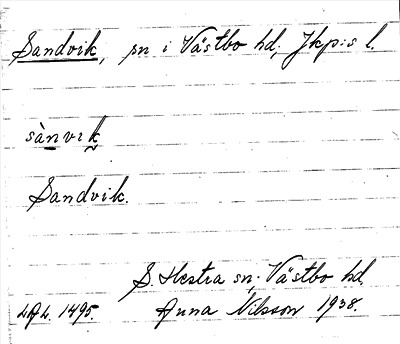 Sandvik, sn i Västbo hd, Jkp:s l.
sànvik
Sandvik.
S. Hestra sn. Västbo hd,
LAL 1495. Anna Nilsson 1938.